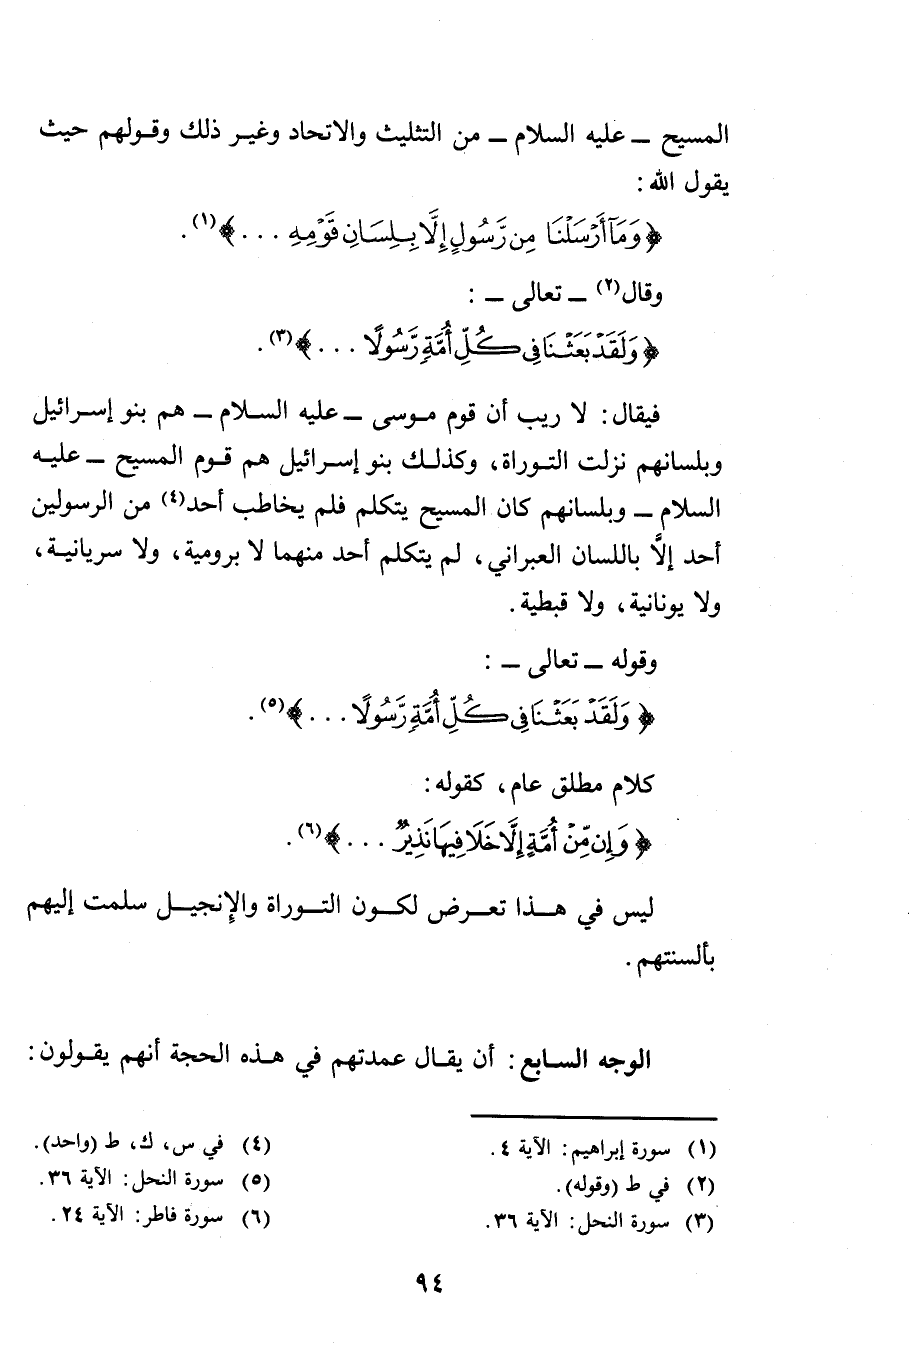 المسيح ــ عليه السلام ــ من التثليث والاتحاد وغير ذلك وقولهم حيث
يقول الله:
﴿ وَمَآ أَرْسَلْنَا مِن رَّسُولٍ إِلَّا بِلِسَانِ قَوْمِهِ . . . ﴾(١).
وقال(٢) ــ تعالى ــ :
﴿ وَلَقَدْ بَعَثْنَا فِى كُلِّ أُمَّةٍ رَّسُولًا . . . ﴾(٣).
فيقال: لا ريب أن قوم موسى ــ عليه السلام ــ هم بنو إسرائيل
وبلسانهم نزلت التوراة، وكذلك بنو إسرائيل هم قوم المسيح ــ عليه
السلام ــ وبلسانهم كان المسيح يتكلم فلم يخاطب أحد(٤) من الرسولين
أحد إلَّا باللسان العبراني، لم يتكلم أحد منهما لا برومية، ولا سريانية،
ولا يونانية، ولا قبطية.
وقوله ــ تعالى ــ :
﴿ وَلَقَدْ بَعَثْنَا فِى كُلِّ أُمَّةٍ رَّسُولًا . . . ﴾(٥).
كلام مطلق عام، كقوله:
﴿ وَإِن مِّنْ أُمَّةٍ إِلَّا خَلَا فِيهَا نَذِيرٌ . . . ﴾(٦).
ليس في هذا تعرض لكون التوراة والإنجيل سلمت إليهم
بألسنتهم.
الوجه السابع: أن يقال عمدتهم في هذه الحجة أنهم يقولون:
(١) سورة إبراهيم: الآية ٤.
(٢) في ط (وقوله).
(٣) سورة النحل: الآية ٣٦.
(٤) في س، ك، ط (واحد).
(٥) سورة النحل: الآية ٣٦.
(٦) سورة فاطر: الآية ٢٤.
٩٤